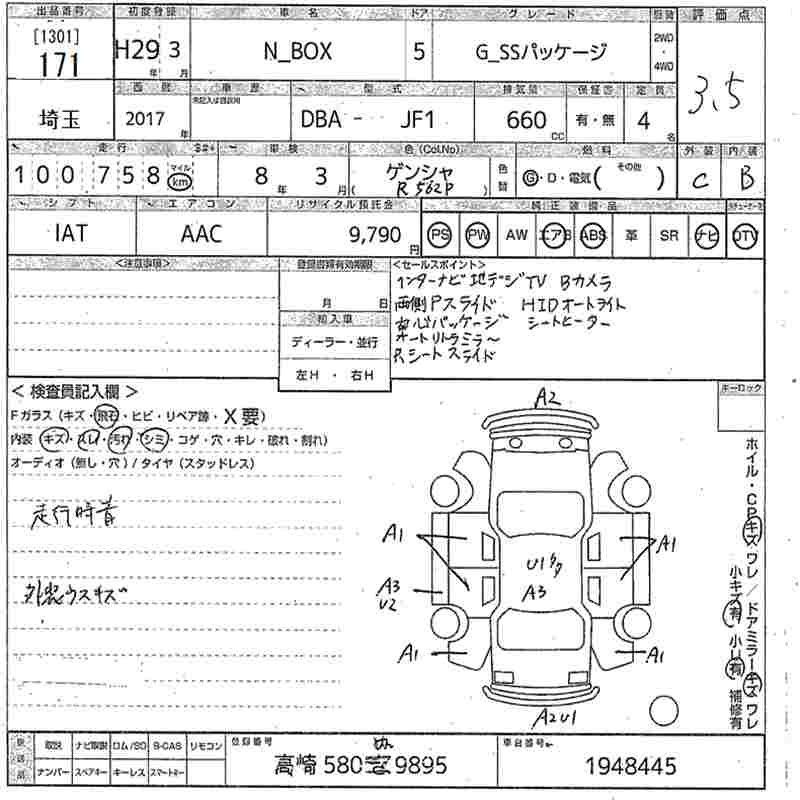 出品番号 初度登録 車名 ドア グレード 評価点
[1301] 171 H29 3 年 月 N_BOX 5 G_SSパッケージ 2WD・4WD 3.5
西暦 車歴 型式 排気量 保証書 定員
埼玉 2017 年 未記入は自家用 DBA - JF1 660 CC 有・無 4 名
走行 車検 色(Col.No) 色替 燃料 外装 内装
100758 マイル km 8 年 3 月 ゲンシャ ( R562P ) G・D・電気( その他 ) C B
シフト エアコン リサイクル預託金 純正装備品
IAT AAC 9,790 円 PS PW AW エアB ABS 革 SR ナビ TV
<注意事項> 登録書類有効期限 <セールスポイント>
月 日
インターナビ 地デジTV Bカメラ
両側Pスライド HIDオートライト
安心パッケージ シートヒーター
オートリトラミラー
Rシートスライド
輸入車
ディーラー・並行
左H・右H
<検査員記入欄>
Fガラス(キズ・飛石・ヒビ・リペア跡・X要)
内装(キズ・スレ・汚れ・シミ・コゲ・穴・キレ・破れ・割れ)
オーディオ(無し・穴)/タイヤ(スタッドレス)
走行時音
外装ウスキズ
キーロック
A2
A1 A1
U1
A3 U2 A3
A1 A1
A2U1
ホイル・CPキズ ワレ/ドアミラーキズ ワレ
小キズ有 小U有 補修有
取説 ナビ取説 ロム/SD B-CAS リモコン 登録番号 車台番号
ナンバー スペアキー キーレス スマートキー 高崎 580 9895 1948445